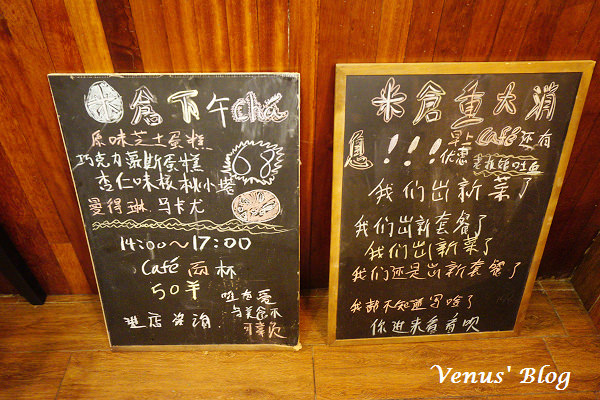 米倉下午cha
原味芝士蛋糕
巧克力慕斯蛋糕
杏仁味核桃小酥
曼得琳.马卡尤
68
14:00～17:00
Café 两杯
50半
进店咨询
唯有爱
与美食不
可辜负
米倉重大消
息!!!早上 cafe还有
优惠
我们出新菜了
我们出新套餐了
我们出新菜了
我们还是出新套餐了
我都不知道写啥了
你进来看看呗
Venus' Blog